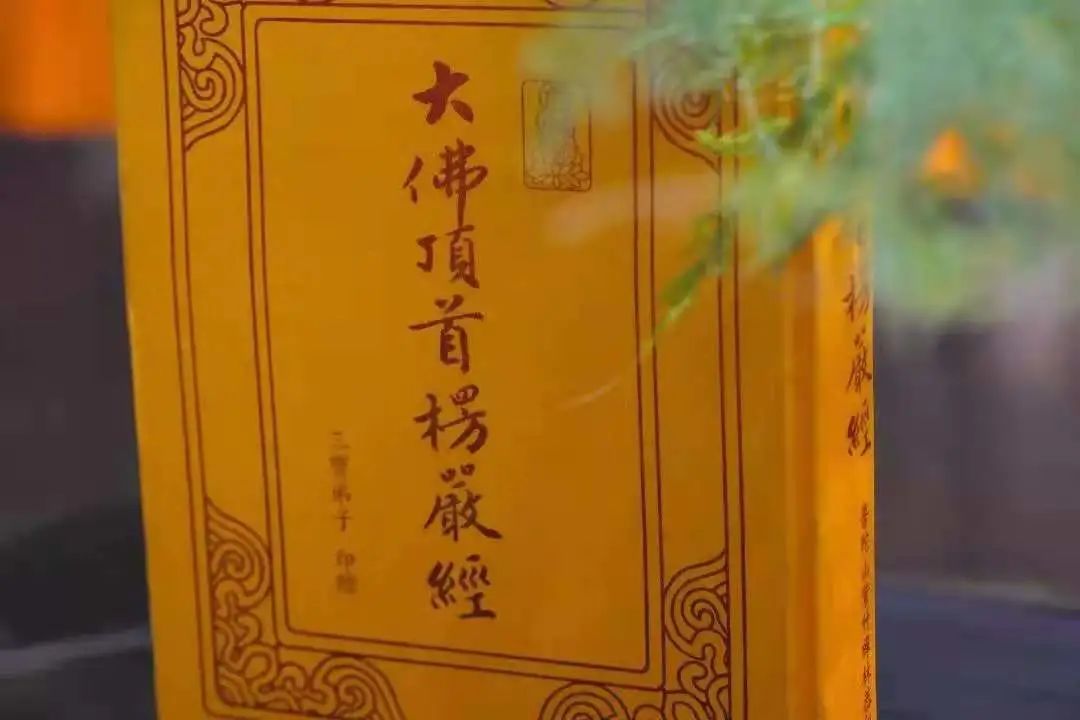 大佛頂首楞嚴經
三寶弟子 印贈
楞嚴經
普陀山寶竹禪林